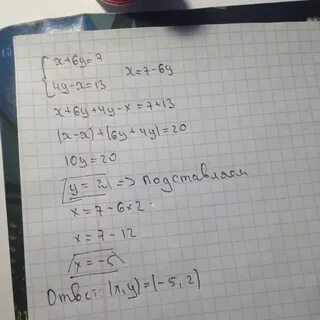 x+6y=7
4y-x=13 x=7-6y
x+6y+4y-x=7+13
(x-x)+(6y+4y)=20
10y=20
y=2 => подставляем
x=7-6×2
x=7-12
x=-5
Ответ: (x,y)=(-5,2)